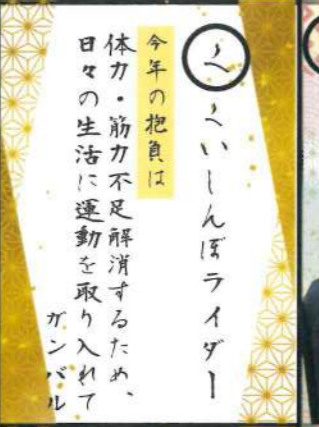 く
くいしんぼライダー
今年の抱負は
体力・筋力不足解消するため、
日々の生活に運動を取り入れて
ガンバル